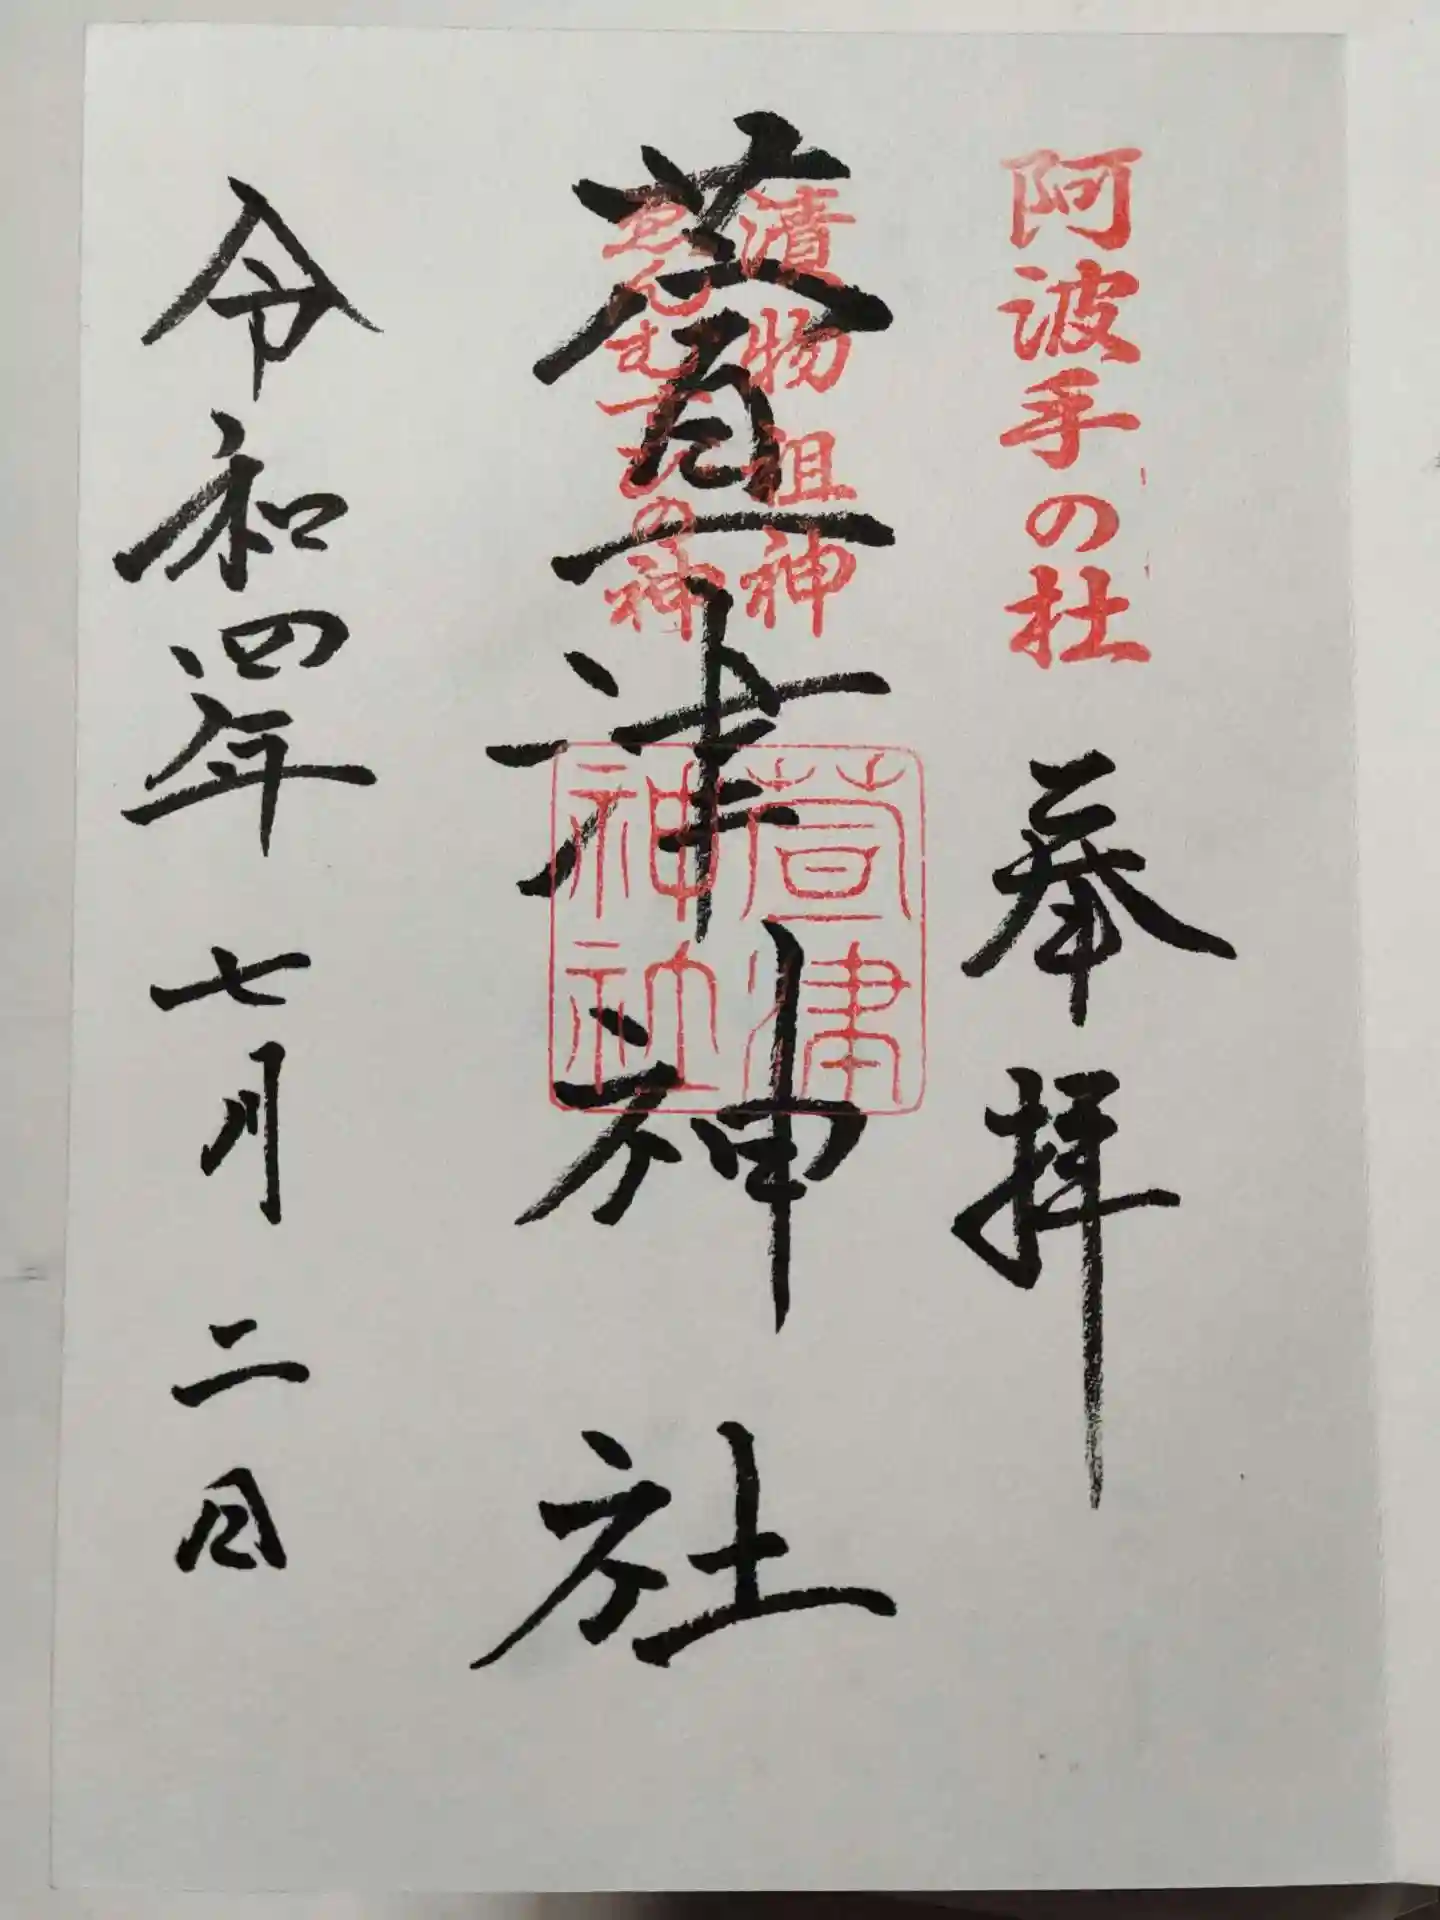 阿波手の杜
奉拝
漬物祖神
ゑんむすびの神
萱津神社
萱津
神社
令和四年 七月 二日